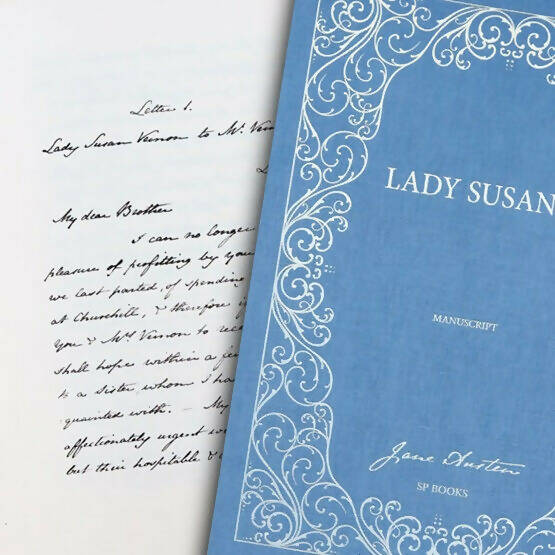 Letter 1.
Lady Susan Vernon to Mr. Vern
My dear Brother
I can no longer
pleasure of profitting by your
we last parted, of spending
at Churchill, & therefore if
you & Mrs Vernon to rece
shall hope within a few
to a sister whom I ha
quainted with. — My
affectionately urgent
but their hospitable &
LADY SUSAN
MANUSCRIPT
Jane Austen
SP BOOKS